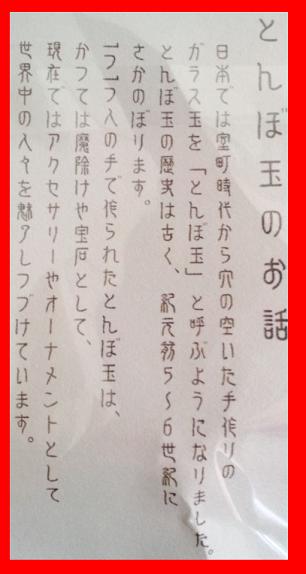 とんぼ玉のお話
日本では室町時代から穴の空いた手作りの
ガラス玉を「とんぼ玉」と呼ぶようになりました。
とんぼ玉の歴史は古く、紀元前5~6世紀に
さかのぼります。
1つ1つ人の手で作られたとんぼ玉は、
かつては魔除けや宝石として、
現在ではアクセサリーやオーナメントとして
世界中の人々を魅了しつづけています。